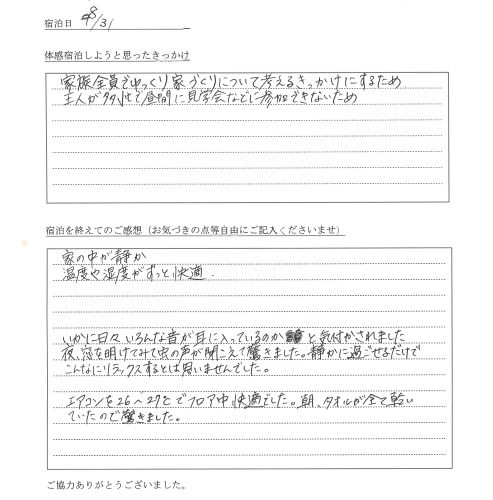 宿泊日 8/31
体感宿泊しようと思ったきっかけ
家族全員でゆっくり家づくりについて考えるきっかけにするため
主人が多忙で昼間に見学会などに参加できないため
宿泊を終えてのご感想（お気づきの点等自由にご記入くださいませ）
家の中が静か
温度や湿度がずっと快適.
いかに日々いろんな音が耳に入っているのか と気付かされました
夜、窓を明けてみて虫の声が聞こえて驚きました。静かに過ごせるだけで
こんなにリラックスするとは思いませんでした。
エアコンを26～27℃でフロア中快適でした。朝、タオルが全て乾い
ていたので驚きました。
ご協力ありがとうございました。